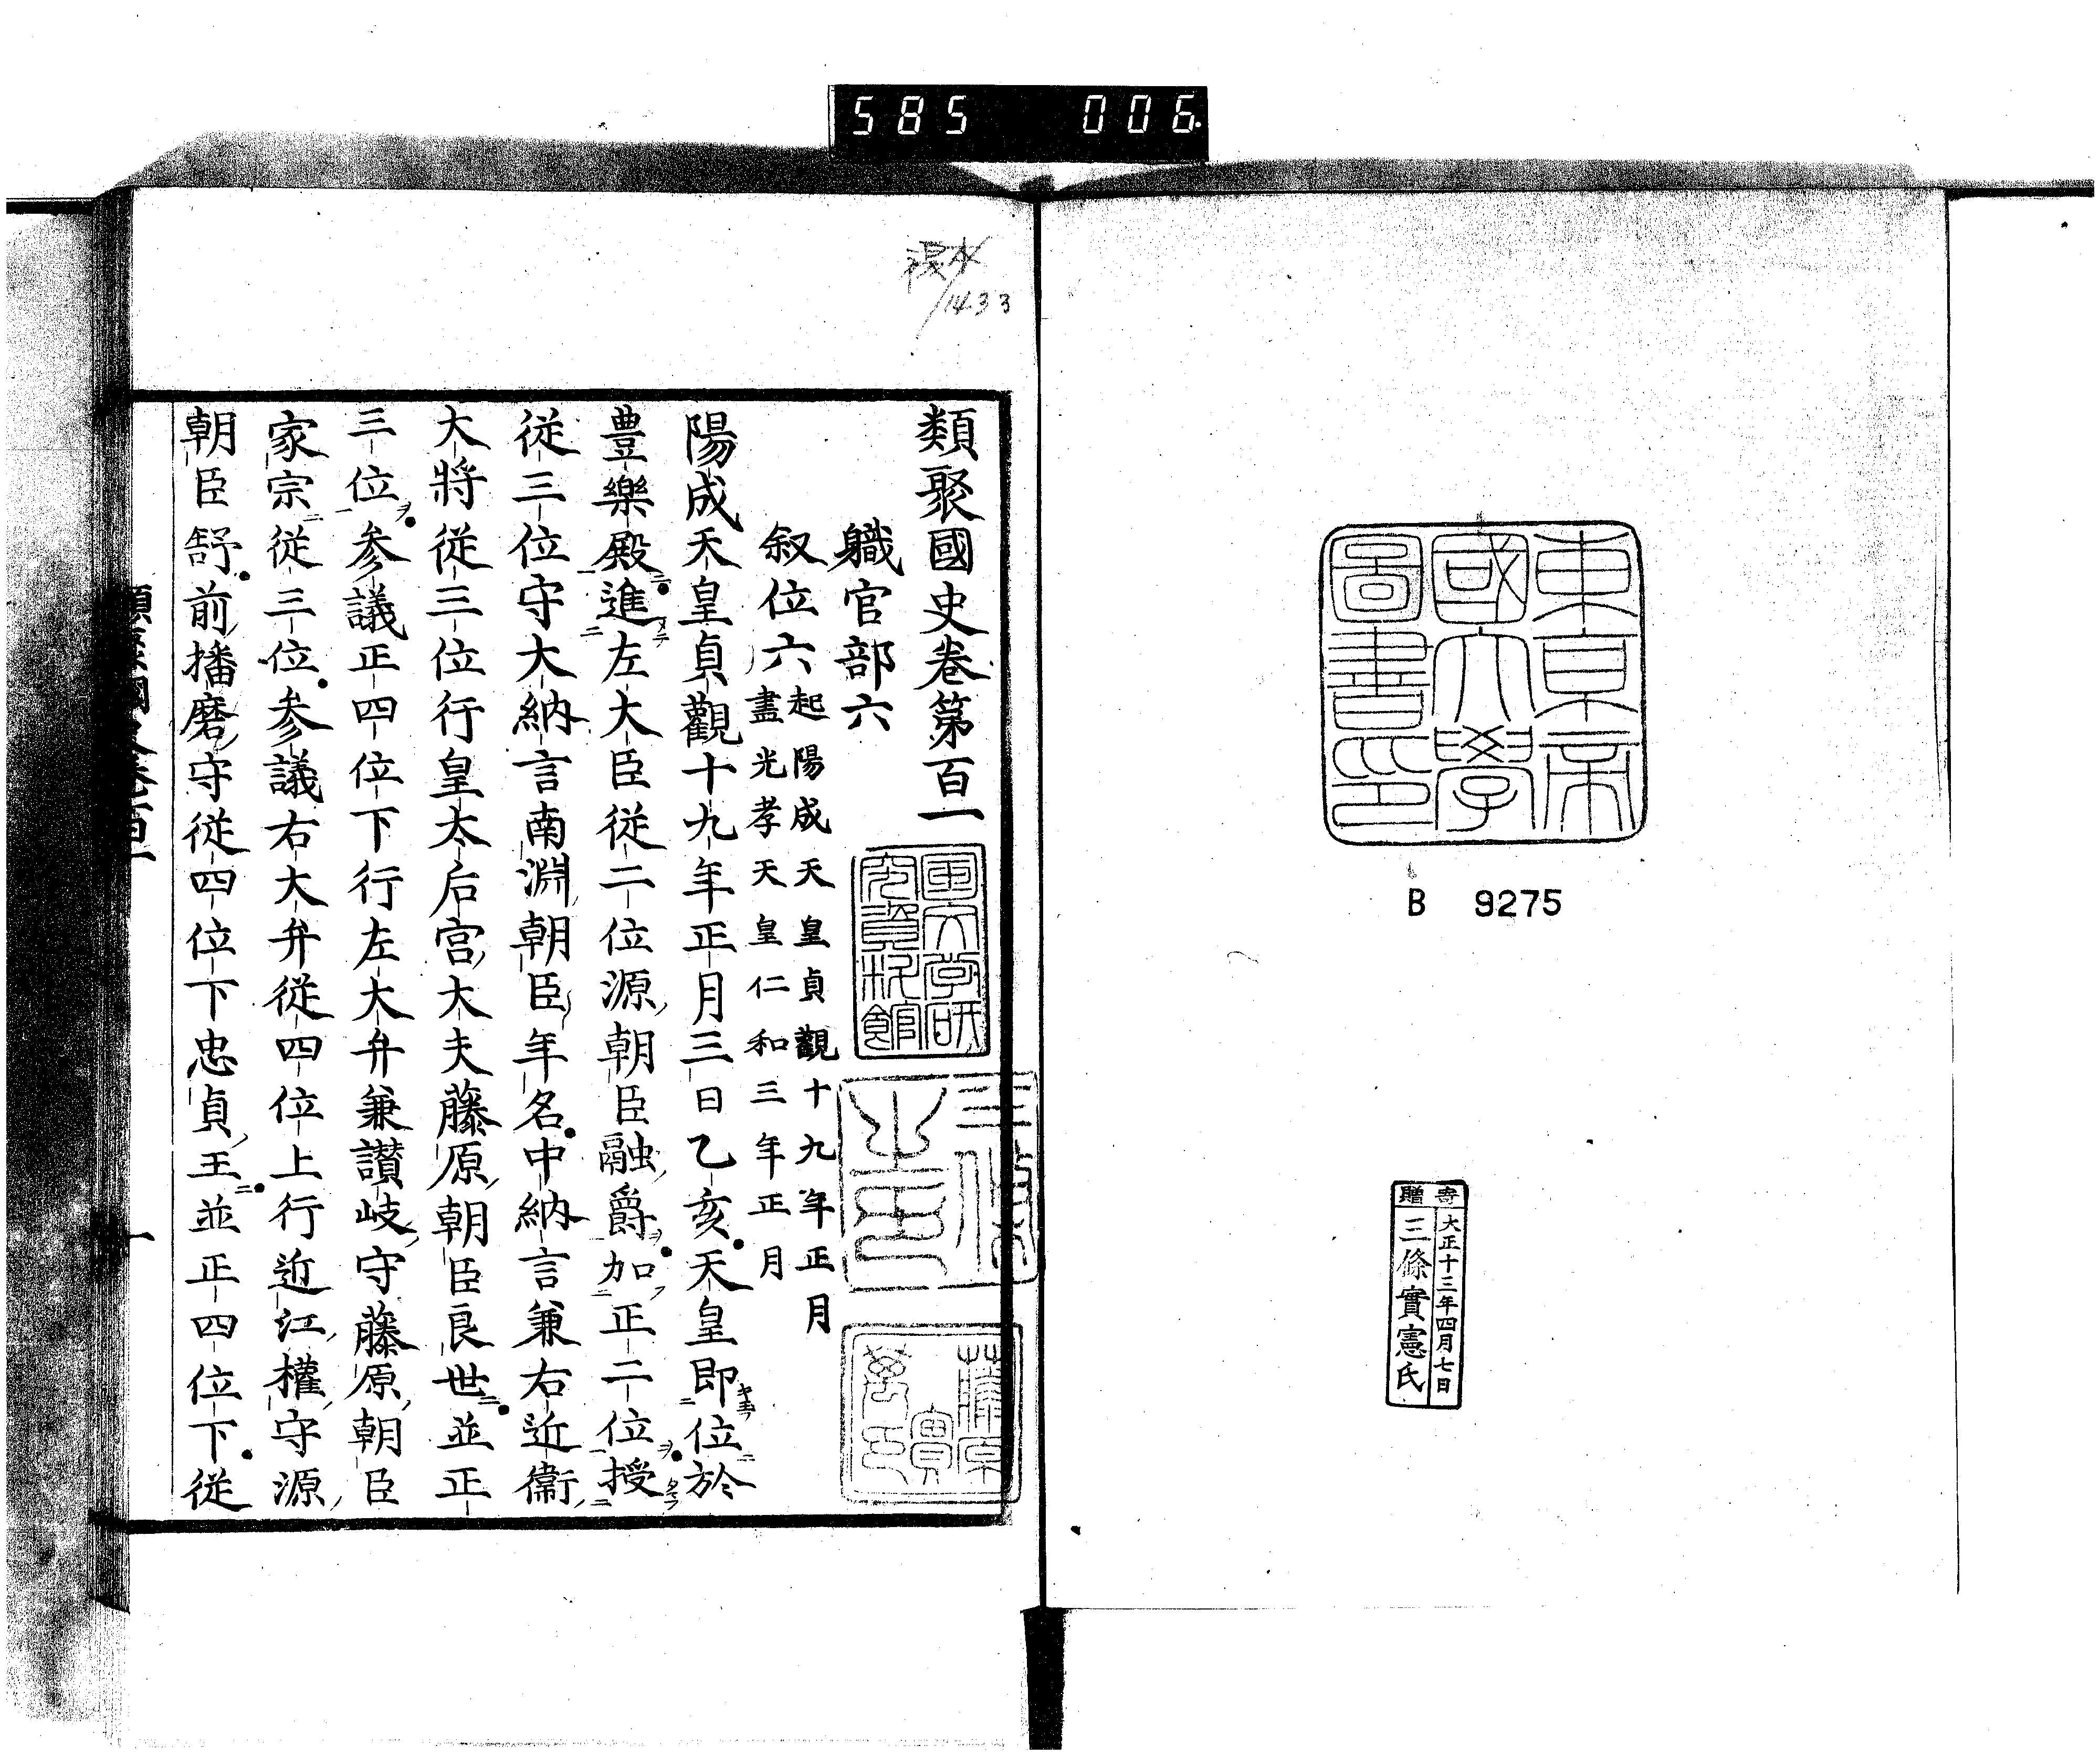 585 006
東京帝
國大學
圖書印
B 9275
寄贈
大正十三年四月七日
三條實憲氏
14.3 3
類聚國史卷第百一
職官部六
叙位六
起陽成天皇貞觀十九年正月
盡光孝天皇仁和三年正月
陽成天皇貞觀十九年正月三日乙亥天皇即位於
豊樂殿進左大臣從二位源朝臣融爵加正二位授
從三位守大納言南淵朝臣年名中納言兼右近衞
大將從三位行皇太后宮大夫藤原朝臣良世並正
三位參議正四位下行左大弁兼讃岐守藤原朝臣
家宗從三位參議右大弁從四位上行近江權守源
朝臣舒前播磨守從四位下忠貞王並正四位下從
藤原
實
萬印